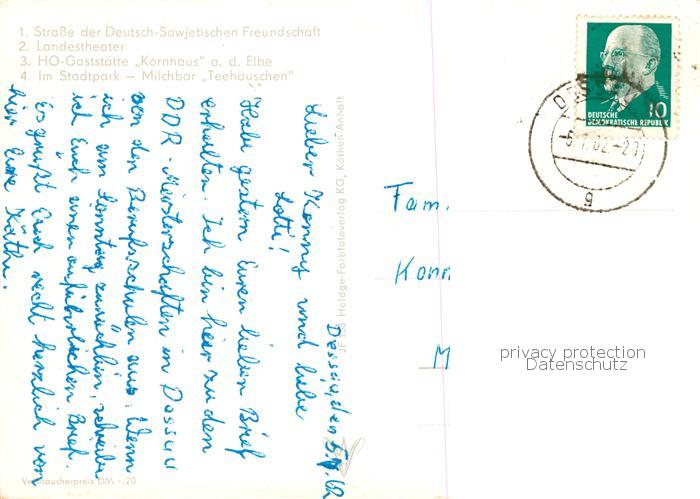 1. Straße der Deutsch-Sowjetischen Freundschaft
2. Landestheater
3. HO-Gaststätte „Kornhaus" a. d. Elbe
4. Im Stadtpark – Milchbar „Teehäuschen"
Dessau, den 5.7.62
Lieber Konny und liebe
Lotti!
Habe gestern Euren lieben Brief
erhalten. Ich bin hier zu den
DDR-Meisterschaften in Dessau
von den Berufsschulen aus. Wenn
ich am Sonntag zurück bin, schreibe
ich Euch einen ausführlichen Brief.
Es grüßt Euch recht herzlich von
hier Eure Käthe.
Heldge-Farbfotoverlag KG, Köthen/Anhalt
Verbraucherpreis DM -,20
10
DEUTSCHE
DEMOKRATISCHE REPUBLIK
DESSAU
62.-20
g
Fam.
Konn
M
privacy protection
Datenschutz